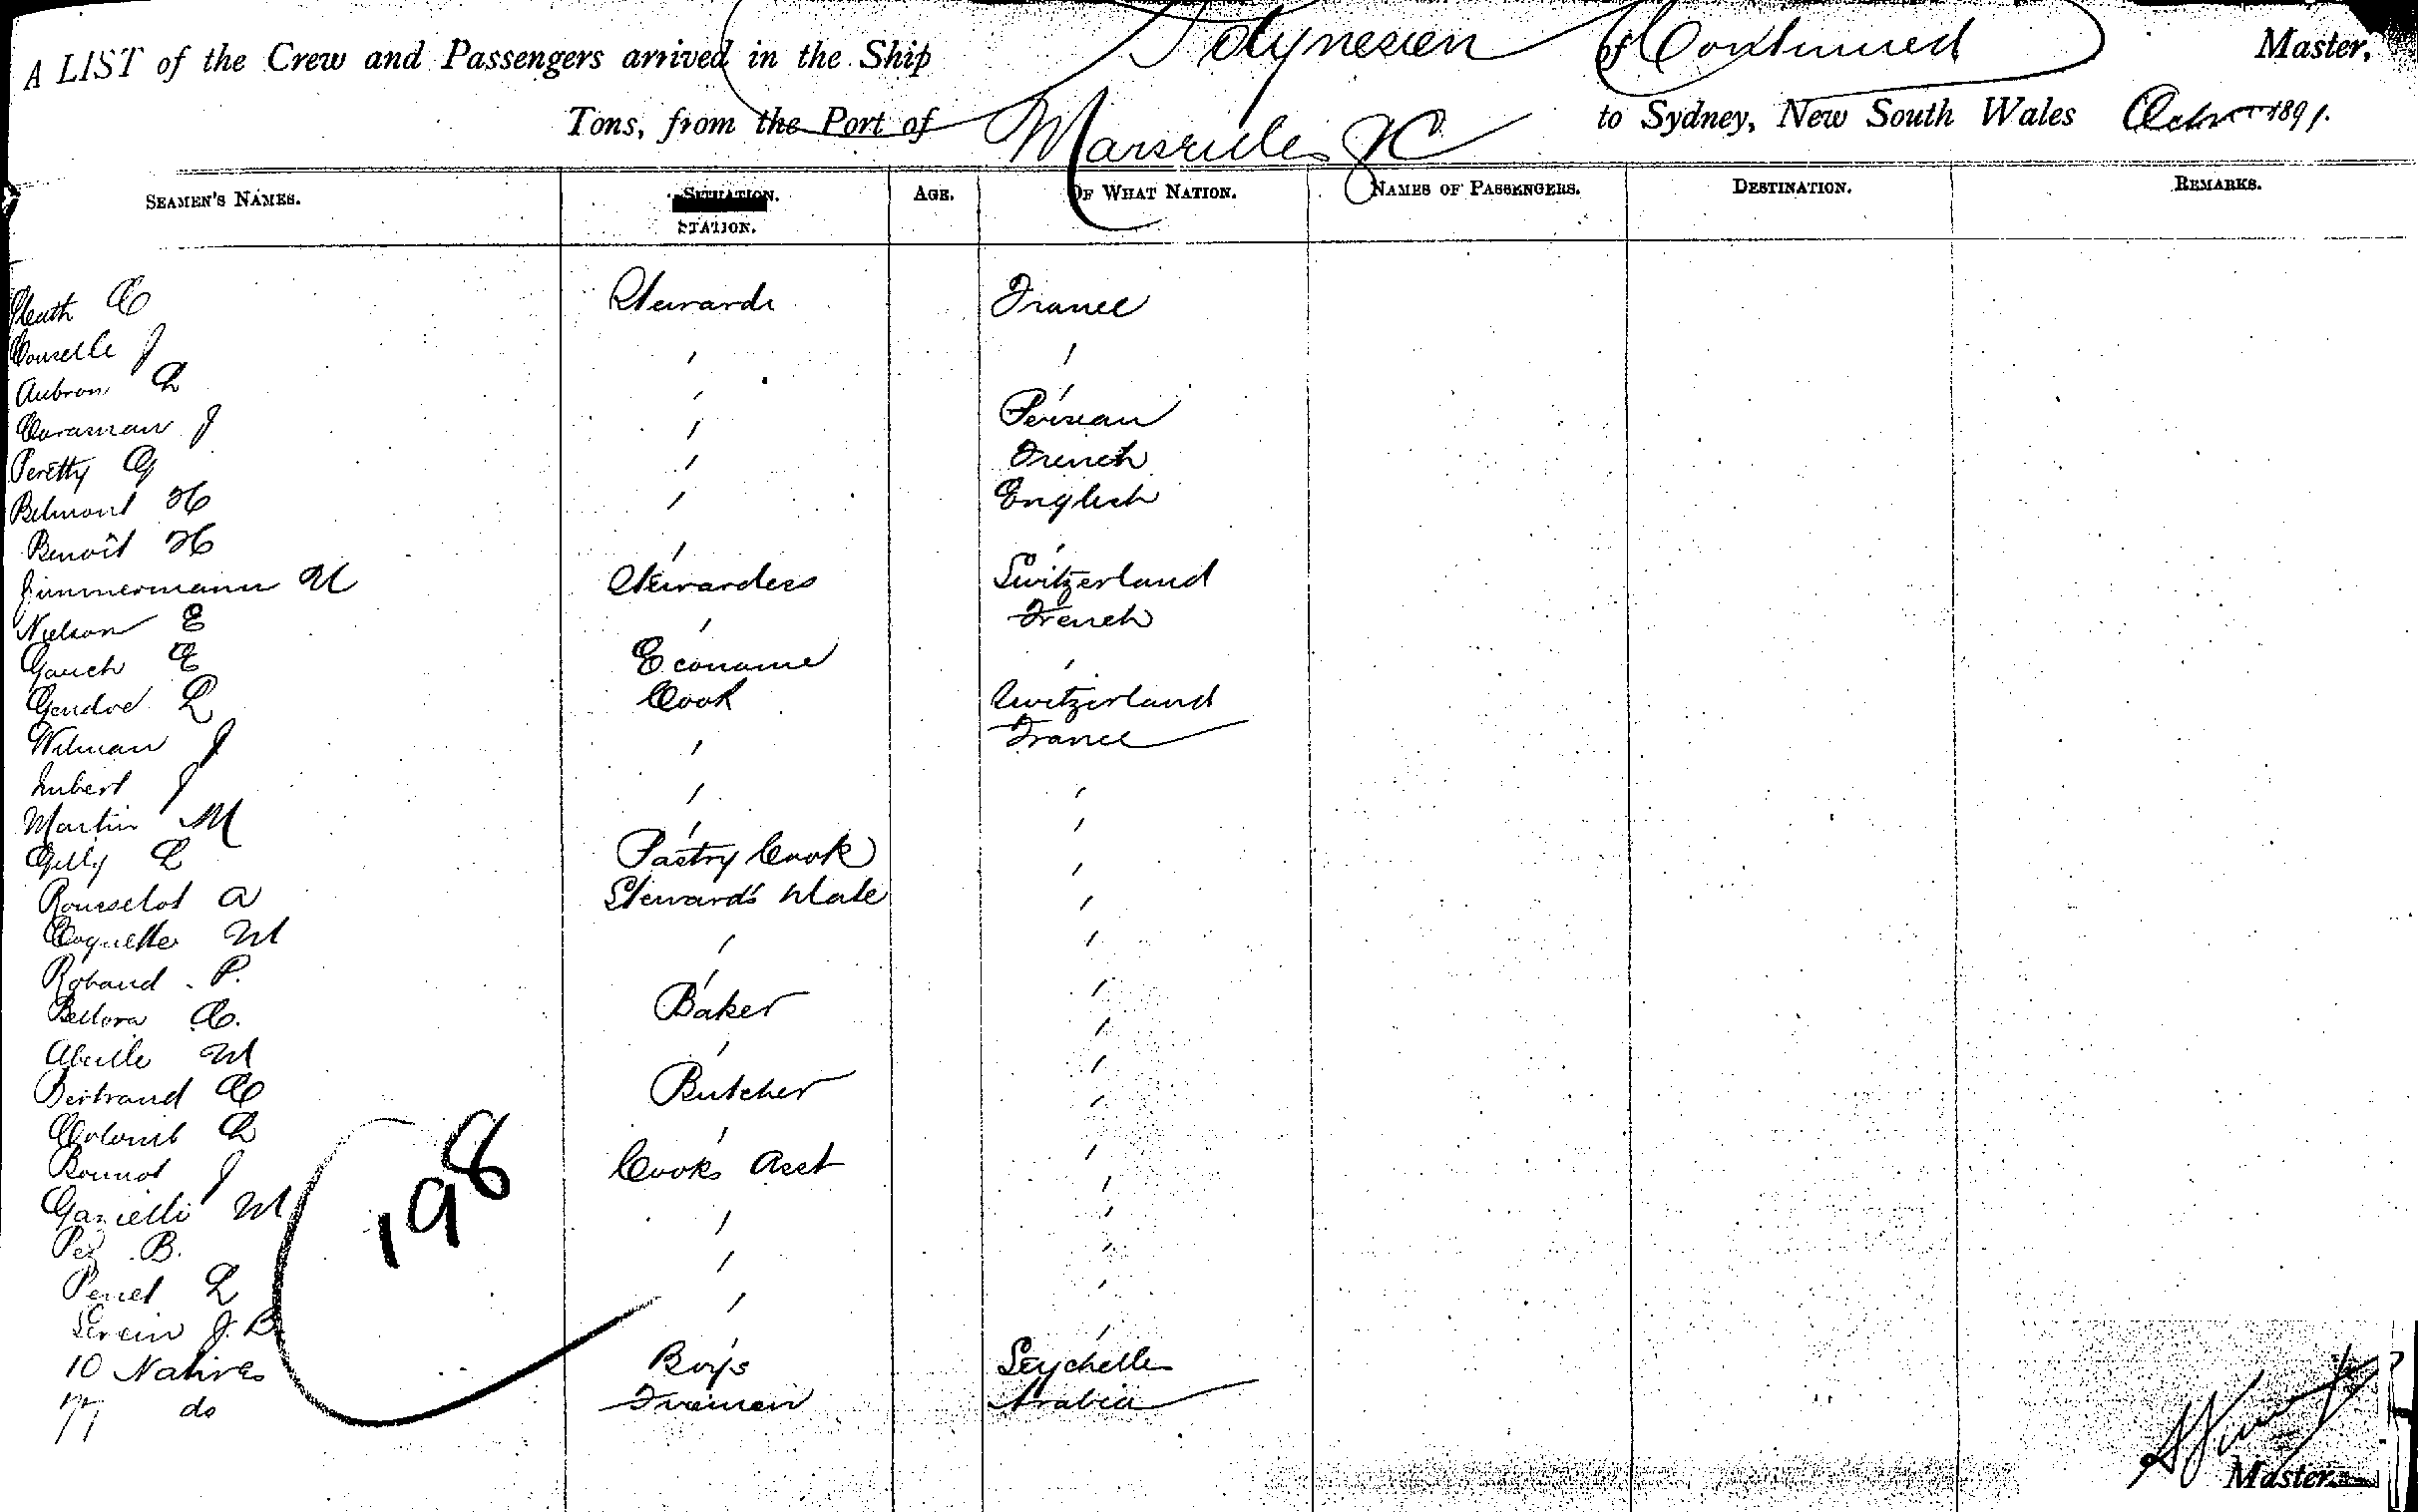 A LIST of the Crew and Passengers arrived in the Ship Polynesien of Continued Master,
Tons, from the Port of Marseilles &C to Sydney, New South Wales Octr 1891.
SEAMEN'S NAMES. SITUATION. AGE. OF WHAT NATION. NAMES OF PASSENGERS. DESTINATION. REMARKS.
STATION.
C Stewards France
J ' '
Aubron Ch ' '
Caraman J ' Persian
Peretty G ' French
Belmont H ' English
Benoît H ' '
Zimmermann M Stewardess Switzerland
Nielson E ' French
Gauch E Econome '
Gendre L Cook Switzerland
Wilman J ' France
Imbert J ' '
Martin M ' '
Gilly L Pastry Cook '
Rousselot A Steward's Mate '
Coquette M ' '
Robaud P. ' '
Bellora C. Baker '
Abeille M ' '
Bertrand C Butcher '
Colomb Ch ' '
Bonnot J Cooks Asst '
Garielli M ' '
Pez B. ' '
Penet L ' '
Serein J. B ' '
10 Natives Boys Seychelles
77 do Firemen Arabia
198
Master